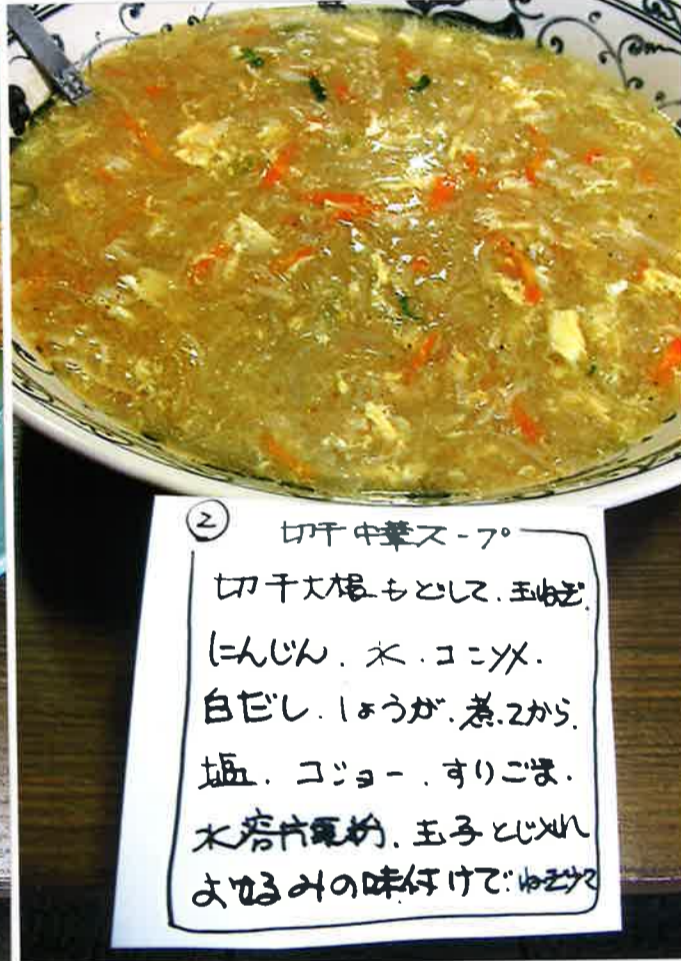 ② 切干中華スープ
切干大根もどして、玉ねぎ、
にんじん、水、コンソメ、
白だし、しょうが、煮てから、
塩、コショー、すりごま、
水溶片栗粉、玉子とじ
みの味付けで